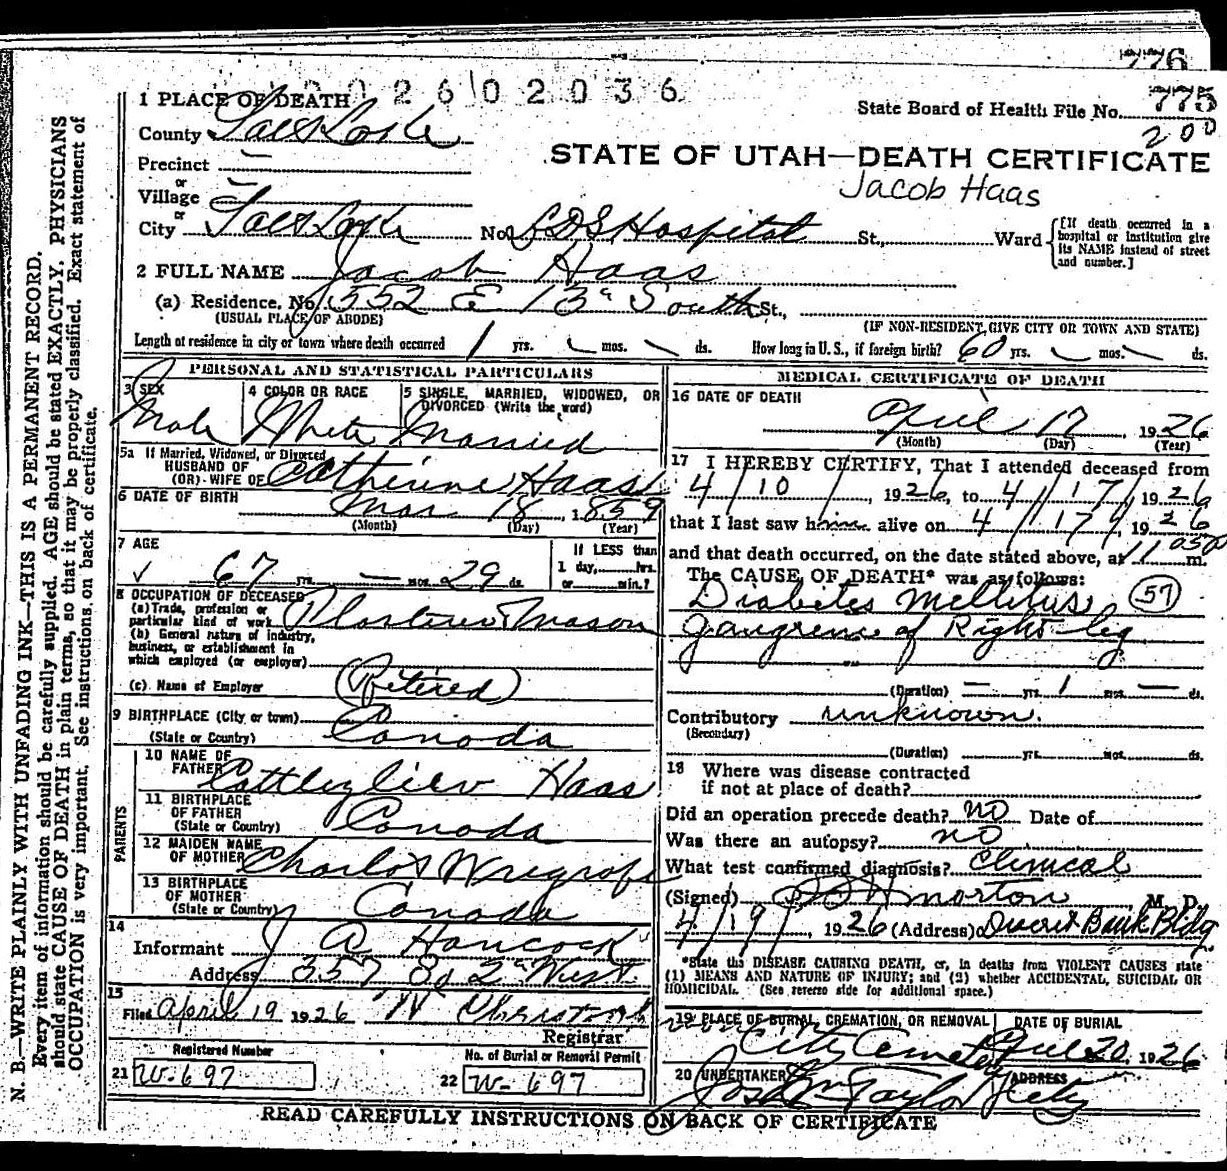 776
0 2 6 0 2 0 3 6
1 PLACE OF DEATH
State Board of Health File No. 775
200
County Salt Lake
STATE OF UTAH—DEATH CERTIFICATE
Jacob Haas
Precinct —
or
Village —
or
City Salt Lake No. LDS Hospital St., Ward
[If death occurred in a hospital or institution give its NAME instead of street and number.]
2 FULL NAME Jacob Haas
(a) Residence. No. 552 E 13th South St.,
(USUAL PLACE OF ABODE)
(IF NON-RESIDENT, GIVE CITY OR TOWN AND STATE)
Length of residence in city or town where death occurred 1 yrs. mos. ds. How long in U. S., if foreign birth? 60 yrs. mos. ds.
PERSONAL AND STATISTICAL PARTICULARS
3 SEX
Male
4 COLOR OR RACE
White
5 SINGLE, MARRIED, WIDOWED, OR DIVORCED (Write the word)
Married
5a If Married, Widowed, or Divorced
HUSBAND OF
(OR) WIFE OF Catherine Haas
6 DATE OF BIRTH
Mar 18, 1859
(Month) (Day) (Year)
7 AGE
67 yrs. — mos. 29 ds.
If LESS than
1 day, hrs.
or min.?
8 OCCUPATION OF DECEASED
(a) Trade, profession or
particular kind of work Mason
(b) General nature of industry,
business, or establishment in
which employed (or employer)
(c) Name of Employer (Retired)
9 BIRTHPLACE (City or town)
(State or Country) Canada
PARENTS
10 NAME OF
FATHER Haas
11 BIRTHPLACE
OF FATHER
(State or Country) Canada
12 MAIDEN NAME
OF MOTHER
13 BIRTHPLACE
OF MOTHER
(State or Country) Canada
14
Informant J A Hancock
Address 357 So 2nd West
15
Filed April 19 1926
Registrar
Registered Number
21 W-697
No. of Burial or Removal Permit
22 W-697
MEDICAL CERTIFICATE OF DEATH
16 DATE OF DEATH
April 17, 1926
(Month) (Day) (Year)
17 I HEREBY CERTIFY, That I attended deceased from
4/10/, 1926, to 4/17/, 1926
that I last saw him alive on 4/17/, 1926
and that death occurred, on the date stated above, at 11 05 p m.
The CAUSE OF DEATH* was as follows:
Diabetes Mellitus (57)
Gangrene of Right leg
(Duration) — yrs. 1 mos. — ds.
Contributory unknown.
(Secondary)
(Duration) yrs. mos. ds.
18 Where was disease contracted
if not at place of death?
Did an operation precede death? no Date of
Was there an autopsy? no
What test confirmed diagnosis? Clinical
(Signed) Morton, M. D.
4/19/, 1926 (Address) Deseret Bank Bldg
*State the DISEASE CAUSING DEATH, or, in deaths from VIOLENT CAUSES state
(1) MEANS AND NATURE OF INJURY; and (2) whether ACCIDENTAL, SUICIDAL OR
HOMICIDAL. (See reverse side for additional space.)
19 PLACE OF BURIAL, CREMATION, OR REMOVAL
City Cemetery
DATE OF BURIAL
April 20, 1926
20 UNDERTAKER
Taylor
ADDRESS
City
READ CAREFULLY INSTRUCTIONS ON BACK OF CERTIFICATE
N. B.—WRITE PLAINLY WITH UNFADING INK—THIS IS A PERMANENT RECORD.
Every item of information should be carefully supplied. AGE should be stated EXACTLY. PHYSICIANS
should state CAUSE OF DEATH in plain terms, so that it may be properly classified. Exact statement of
OCCUPATION is very important. See instructions on back of certificate.